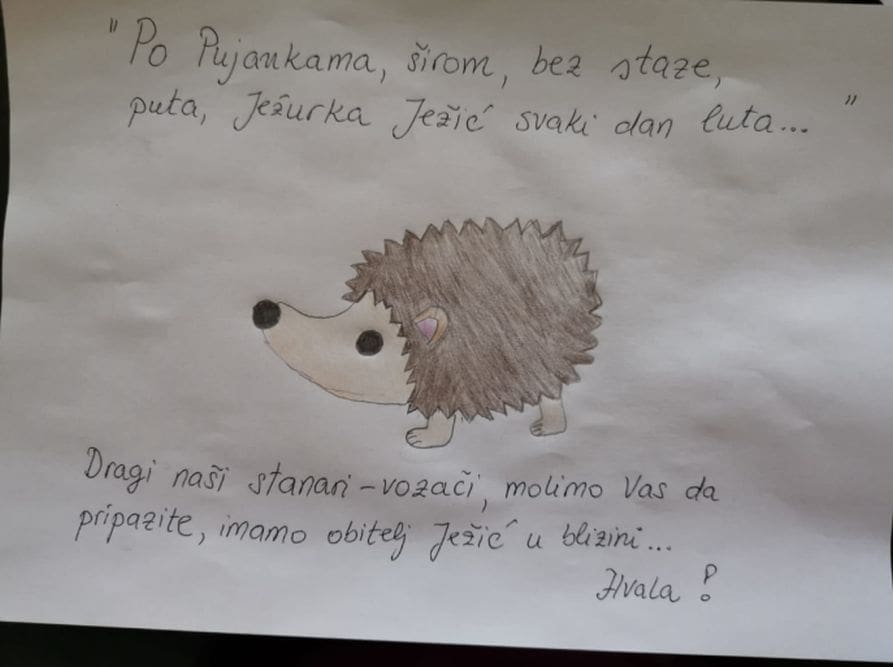 "Po Pujankama, širom, bez staze,
puta, Ježurka Ježić svaki dan luta... "
Dragi naši stanari-vozači, molimo Vas da
pripazite, imamo obitelj Ježić u blizini...
Hvala !